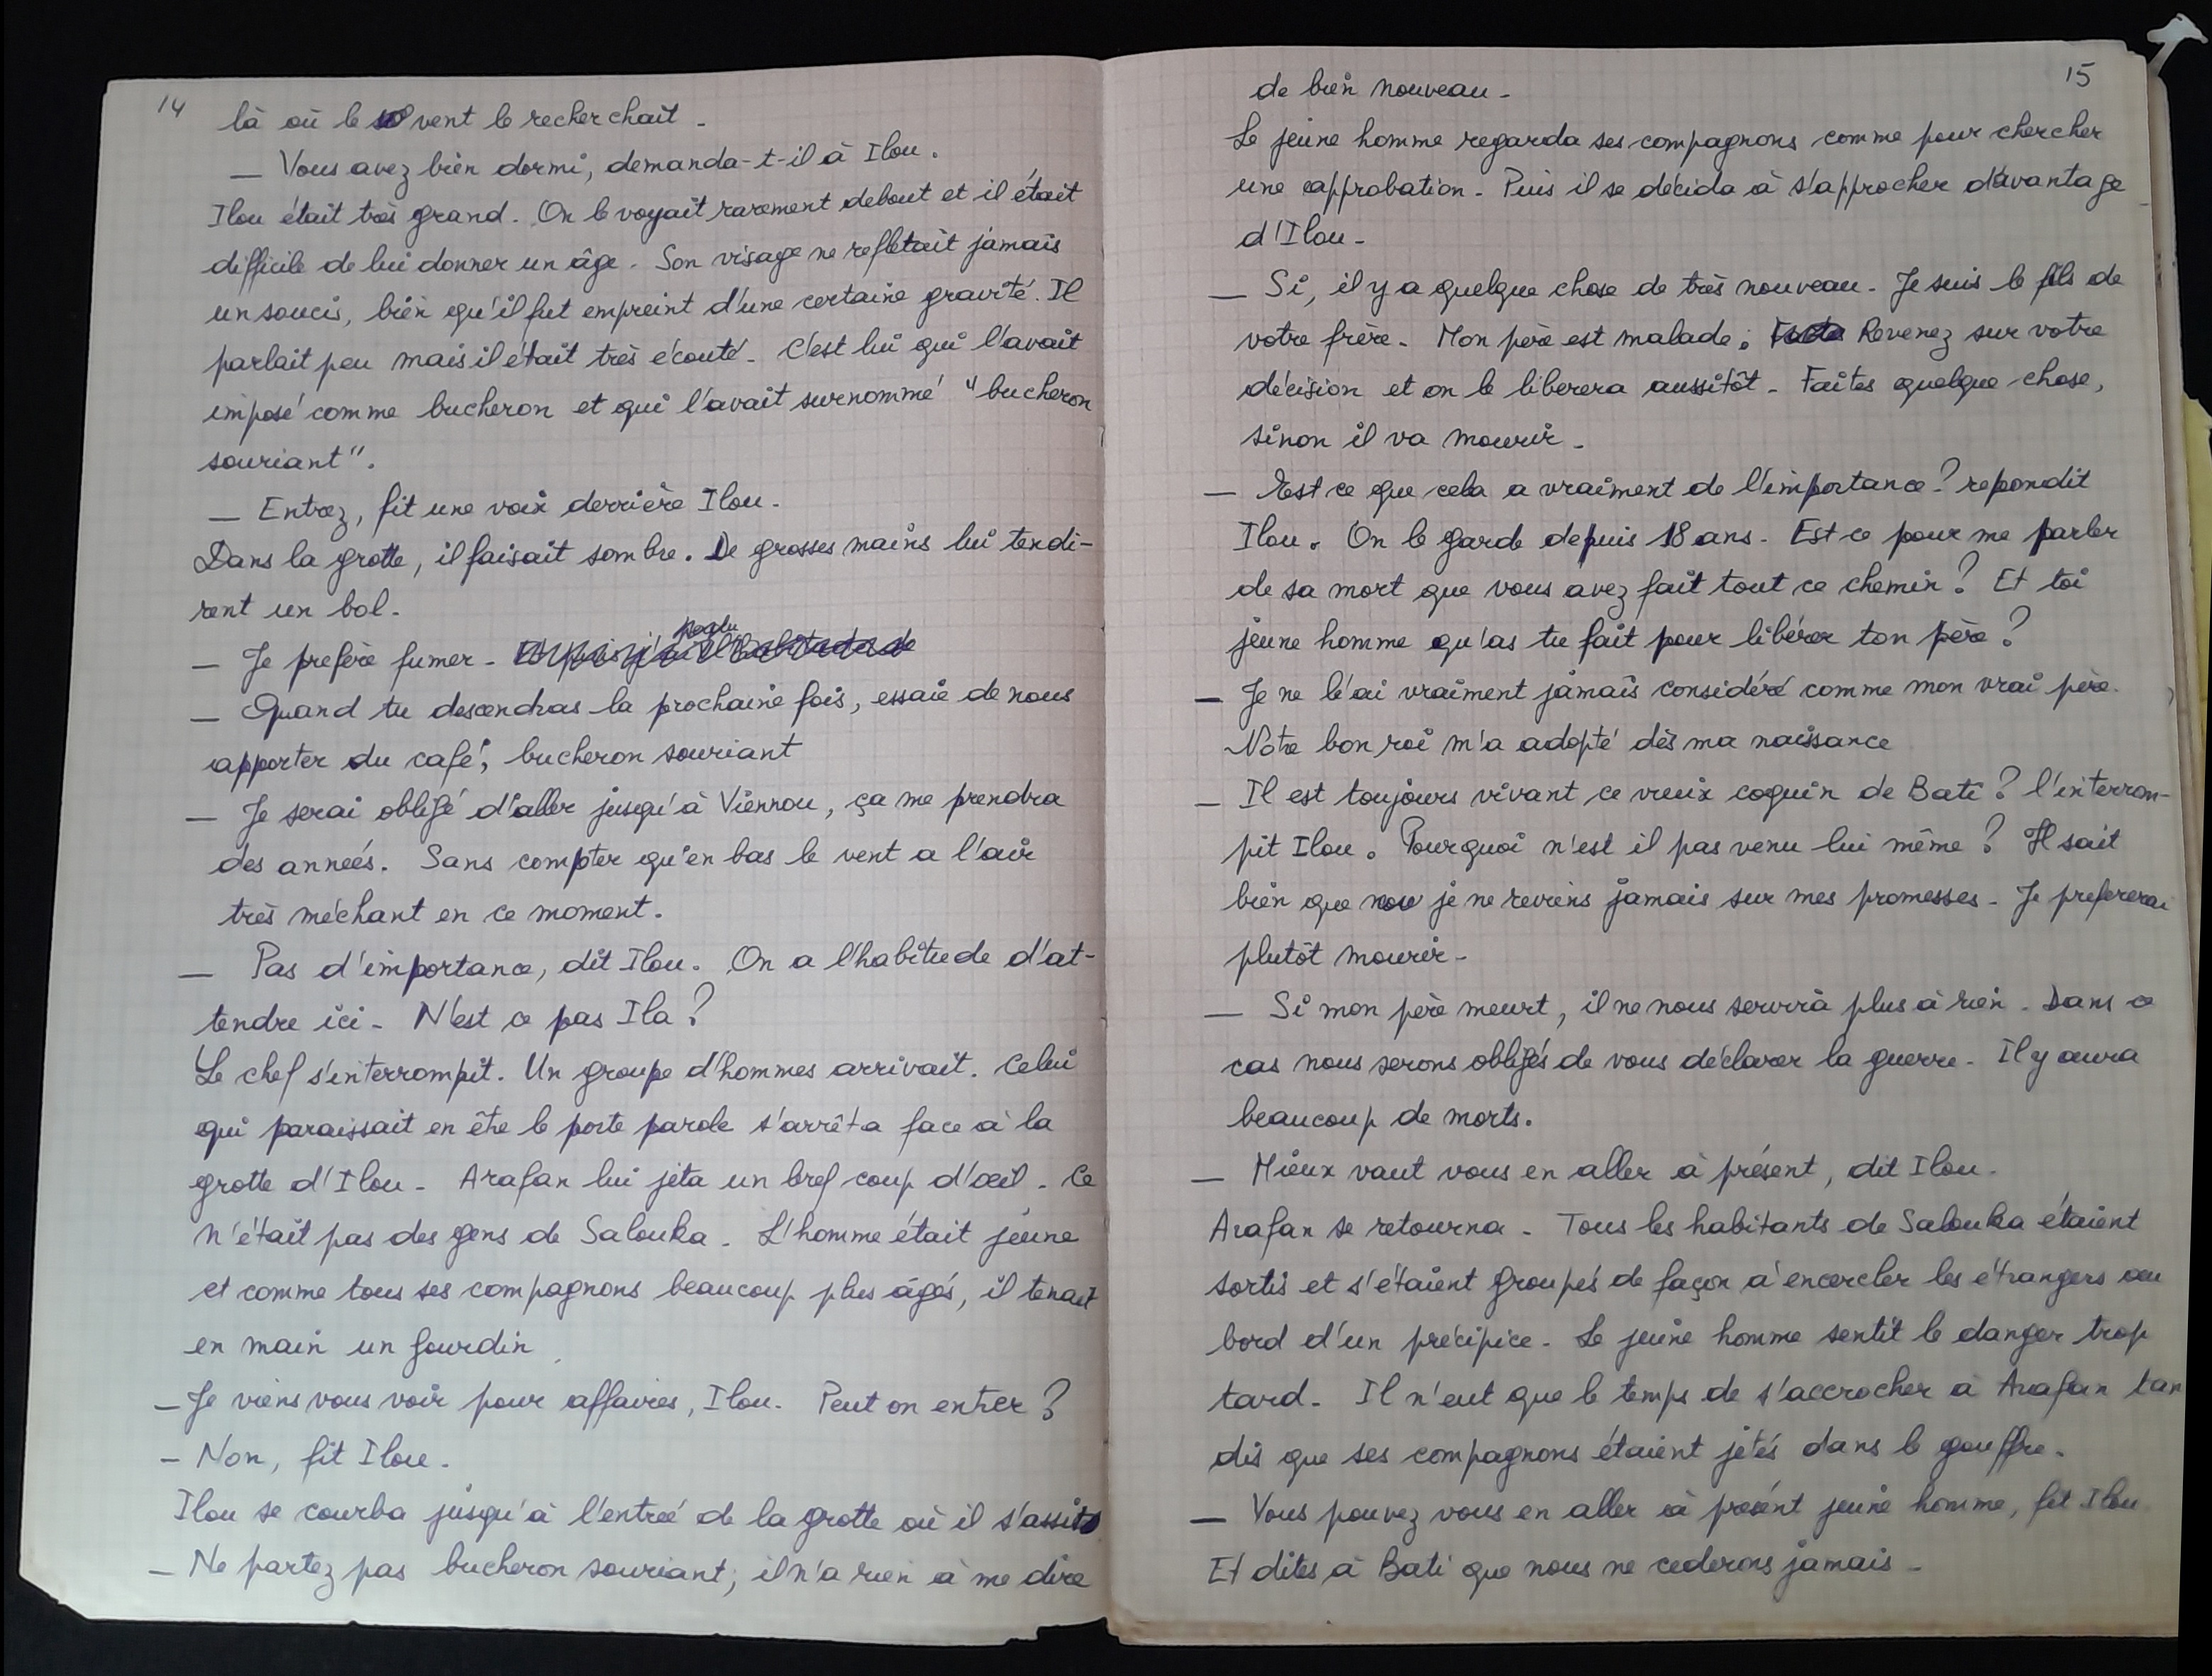 14
là où le vent le recherchait.
— Vous avez bien dormi, demanda-t-il à Ilou.
Ilou était très grand. On le voyait rarement debout et il était
difficile de lui donner un âge. Son visage ne reflétait jamais
un soucis, bien qu'il fut empreint d'une certaine gravité. Il
parlait peu mais il était très écouté. C'est lui qui l'avait
imposé comme bucheron et qui l'avait surnommé "bucheron
souriant".
— Entrez, fit une voix derrière Ilou.
Dans la grotte, il faisait sombre. De grosses mains lui tendi-
rent un bol.
— Je prefère fumer.
— Quand tu descendras la prochaine fois, essaie de nous
apporter du café, bucheron souriant
— Je serai obligé d'aller jusqu'à Viennou, ça me prendra
des années. Sans compter qu'en bas le vent a l'air
très méchant en ce moment.
— Pas d'importance, dit Ilou. On a l'habitude d'at-
tendre ici. N'est ce pas Ila?
Le chef s'interrompit. Un groupe d'hommes arrivait. Celui
qui paraissait en être le porte parole s'arrêta face à la
grotte d'Ilou. Arafan lui jeta un bref coup d'œil. Ce
n'était pas des gens de Salouka. L'homme était jeune
et comme tous ses compagnons beaucoup plus âgés, il tenait
en main un gourdin
— Je viens vous voir pour affaires, Ilou. Peut on entrer?
— Non, fit Ilou.
Ilou se courba jusqu'à l'entrée de la grotte où il s'assit
— Ne partez pas bucheron souriant, il n'a rien à me dire
15
de bien nouveau.
Le jeune homme regarda ses compagnons comme pour chercher
une approbation. Puis il se décida à s'approcher d'avantage
d'Ilou.
— Si, il y a quelque chose de très nouveau. Je suis le fils de
votre frère. Mon père est malade. Revenez sur votre
décision et on le liberera aussitôt. Faites quelque chose,
sinon il va mourir.
— Est ce que cela a vraiment de l'importance? repondit
Ilou. On le garde depuis 18 ans. Est ce pour me parler
de sa mort que vous avez fait tout ce chemin? Et toi
jeune homme qu'as tu fait pour libérer ton père?
— Je ne l'ai vraiment jamais considéré comme mon vrai père.
Notre bon roi m'a adopté dès ma naissance
— Il est toujours vivant ce vieux coquin de Bati? l'interrom-
pit Ilou. Pourquoi n'est il pas venu lui même? Il sait
bien que je ne reviens jamais sur mes promesses. Je prefererai
plutôt mourir.
— Si mon père meurt, il ne nous servira plus à rien. Dans ce
cas nous serons obligés de vous déclarer la guerre. Il y aura
beaucoup de morts.
— Mieux vaut vous en aller à présent, dit Ilou.
Arafan se retourna. Tous les habitants de Salouka étaient
sortis et s'étaient groupés de façon à encercler les étrangers au
bord d'un précipice. Le jeune homme sentit le danger trop
tard. Il n'eut que le temps de s'accrocher à Arafan tan
dis que ses compagnons étaient jetés dans le gouffre.
— Vous pouvez vous en aller à présent jeune homme, fit Ilou
Et dites à Bati que nous ne cederons jamais.